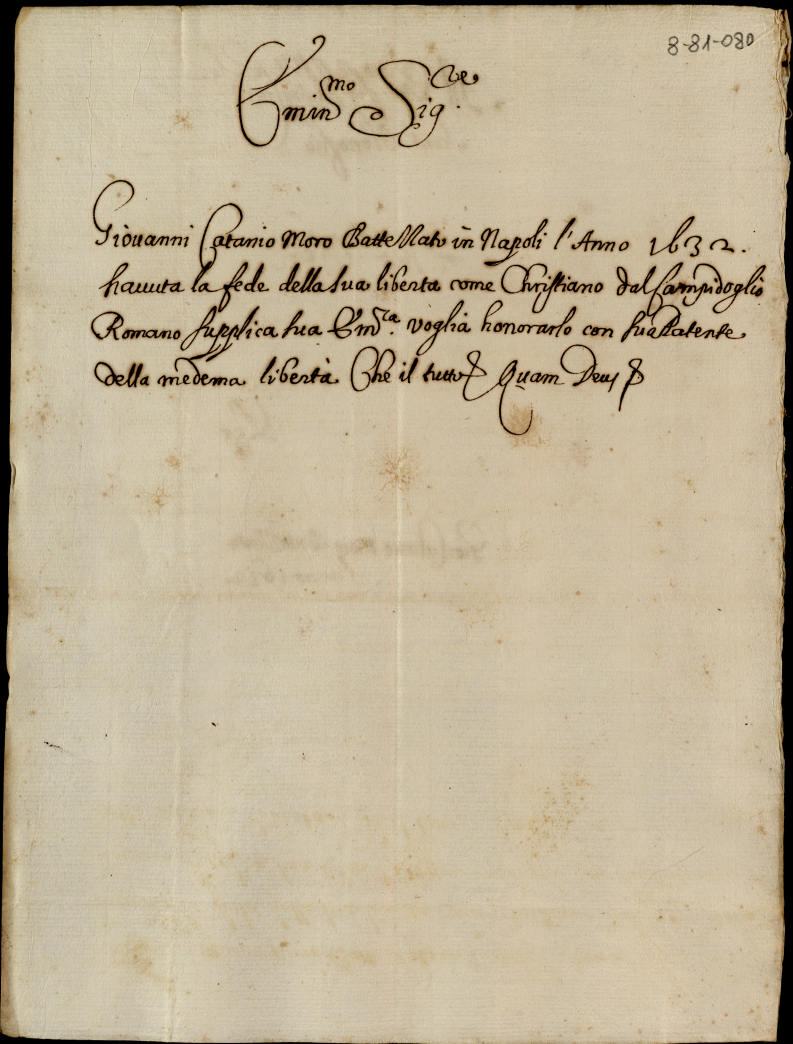 8-81-080
Emin.mo Sig.re
Giouanni Catanio Moro Battezzato in Napoli l'Anno 1632.
hauuta la fede della sua liberta come Christiano dal Campidoglio
Romano supplica sua Em.za voglia honorarlo con sua Patente
della medema libertà Che il tutto Quam Deus